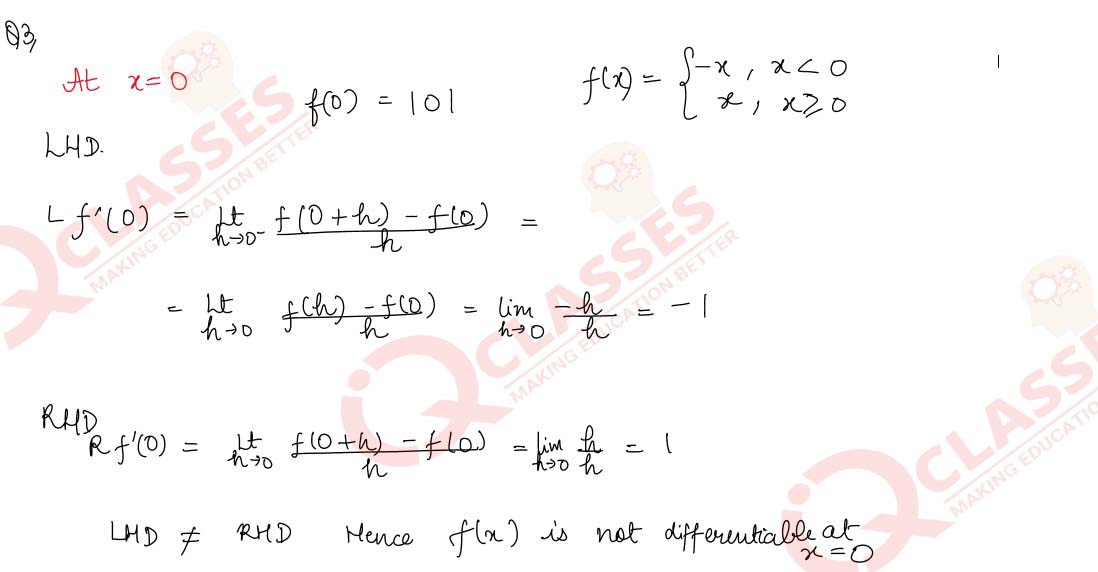 Q3,
At x=0
f(0) = |0|
f(x) = { -x , x < 0
x , x ≥ 0
LHD.
L f'(0) = Lt h→0⁻ f(0+h) - f(0) / h =
= Lt h→0 f(h) - f(0) / h = lim h→0 -h / h = -1
RHD
R f'(0) = Lt h→0 f(0+h) - f(0) / h = lim h→0 h / h = 1
LHD ≠ RHD Hence f(x) is not differentiable at x=0
QCLASSES
MAKING EDUCATION BETTER
QCLASSES
MAKING EDUCATION BETTER
QCLASSE
MAKING EDUCATION